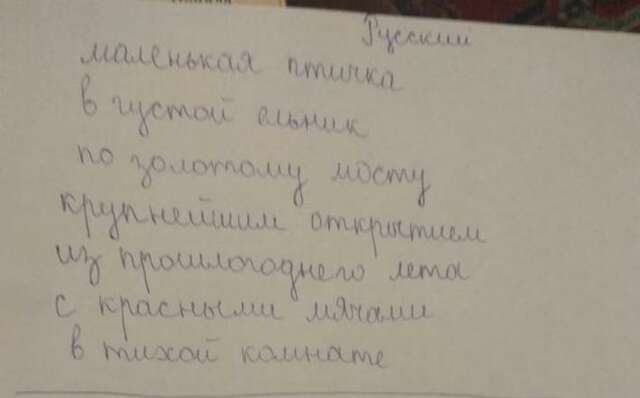 Русский
маленькая птичка
в густой ельник
по золотому мосту
крупнейшим открытием
из прошлогоднего лета
с красными мячами
в тихой комнате